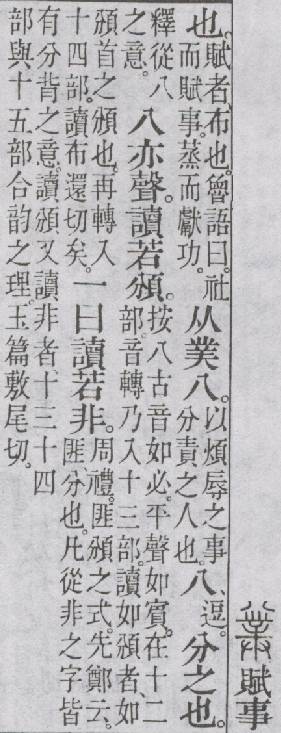 賦事
也。賦者、布也。魯語曰。社而賦事。蒸而獻功。从菐八。以煩辱之事分責之人也。八、逗。分之也。
釋從八之意。八亦聲。讀若頒。按八古音如必。平聲如賓。在十二部。音轉乃入十三部。讀如頒者、如
頒首之頒也。再轉入十四部。讀布還切矣。一曰讀若非。周禮。匪頒之式。先鄭云。匪分也。凡從非之字皆
有分背之意。讀頒又讀非者、十三十四部與十五部合韵之理。玉篇敷尾切。